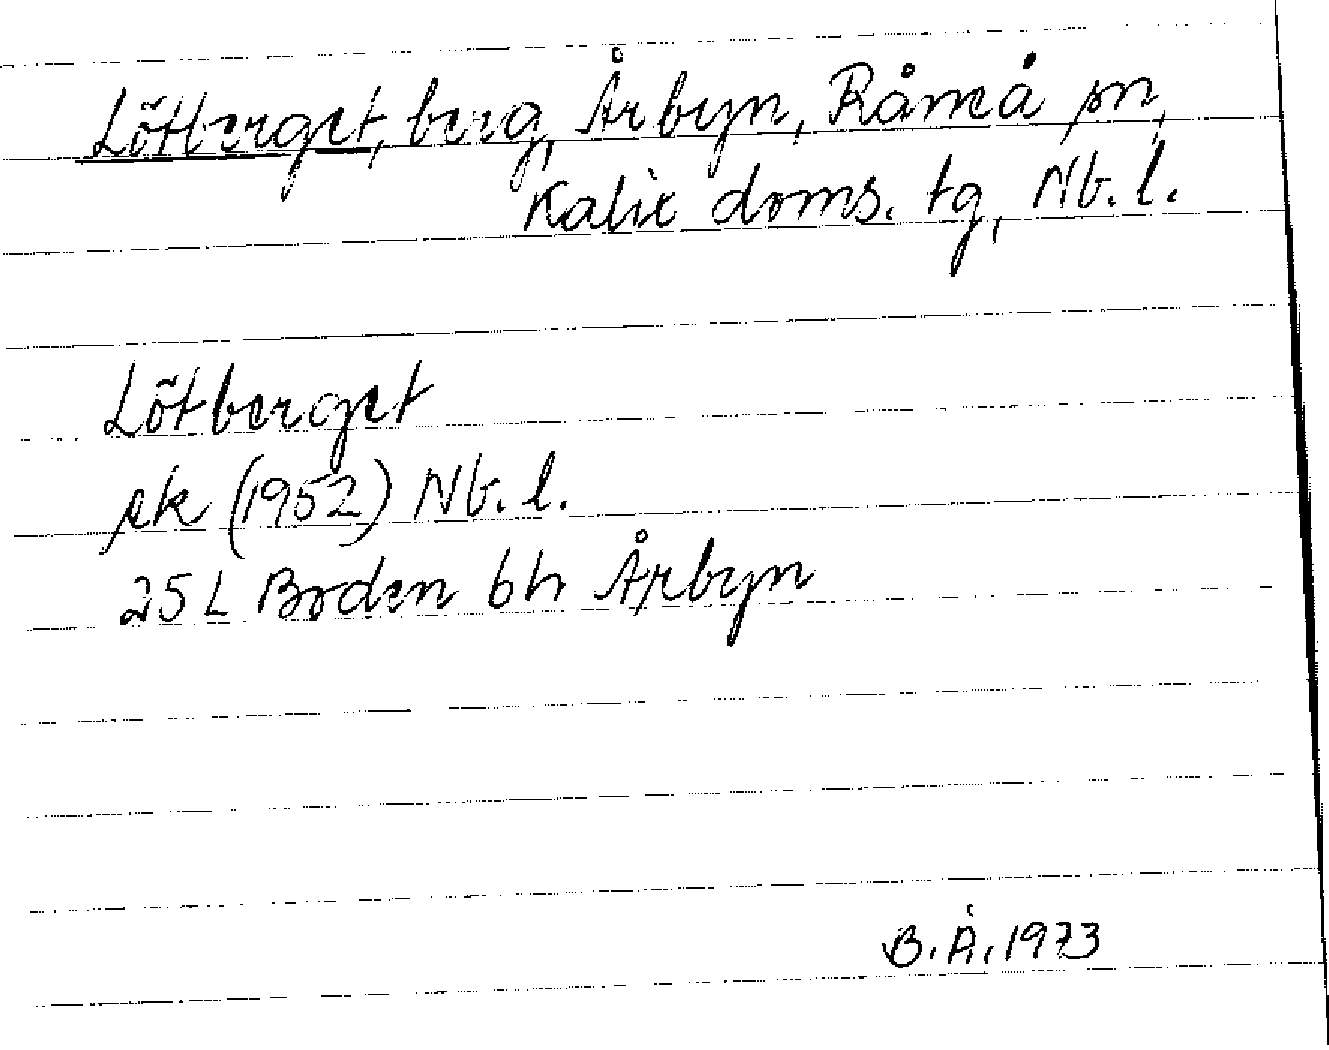 Lötberget, berg, Årbyn, Råneå sn,
Kalix doms. tg, Nb. l.
Lötberget
ek (1952) Nb. l.
25 L Boden 6h Årbyn
B. Å. 1973